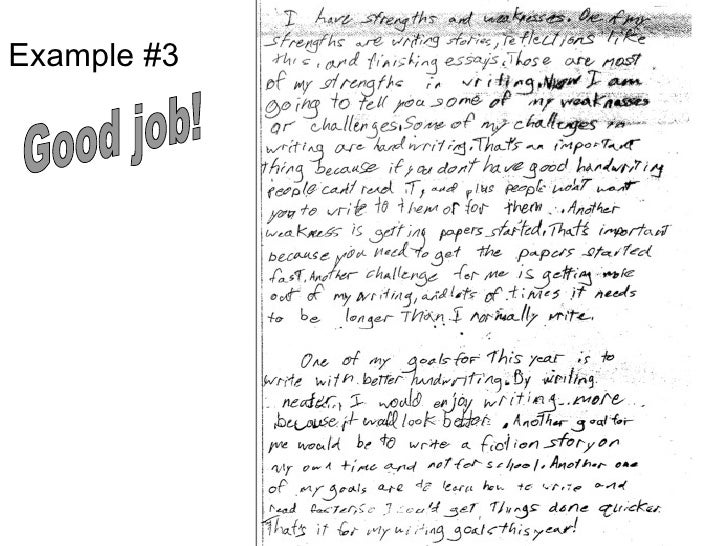 Example #3
Good job!
I have strengths and weaknesses. One of my
strengths are writing stories, reflections like
this, and finishing essays. Those are most
of my strengths in writing. Now I am
going to tell you some of my weaknesses
or challenges. Some of my challenges in
writing are handwriting. That's an important
thing because if you don't have good handwriting
people can't read it, and plus people won't want
you to write to them or for them. Another
weakness is getting papers started. That's important
because you need to get the papers started
fast. Another challenge for me is getting more
out of my writing, and lots of times it needs
to be longer than I normally write.
One of my goals for this year is to
write with better handwriting. By writing
neater, I would enjoy writing more
because it would look better. Another goal for
me would be to write a fiction story on
my own time and not for school. Another one
of my goals are to learn how to write and
read faster, so I could get things done quicker.
That's it for my writing goals this year!